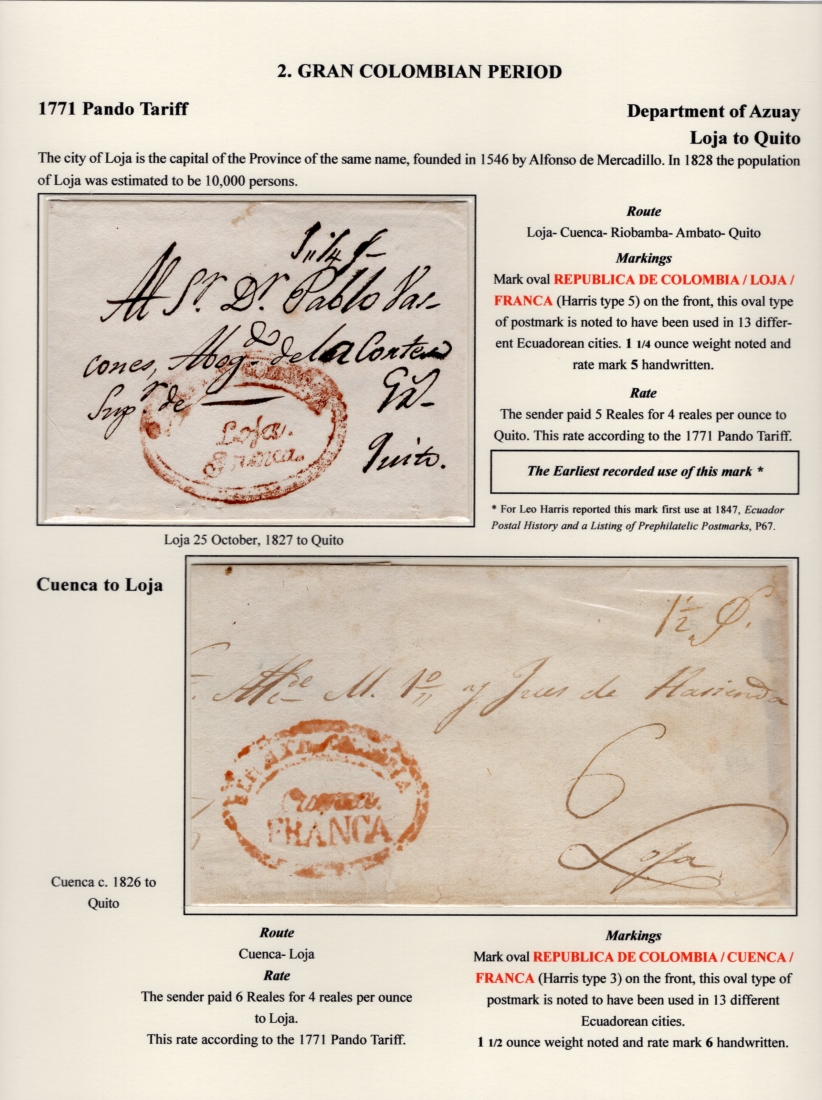 2. GRAN COLOMBIAN PERIOD
1771 Pando Tariff
Department of Azuay
Loja to Quito
The city of Loja is the capital of the Province of the same name, founded in 1546 by Alfonso de Mercadillo. In 1828 the population
of Loja was estimated to be 10,000 persons.
Al Sr. Dr. Pablo Vas-
cones, Abogdo de la Corte
Supr. de
Quito.
Loja.
Franca.
Loja 25 October, 1827 to Quito
Route
Loja- Cuenca- Riobamba- Ambato- Quito
Markings
Mark oval REPUBLICA DE COLOMBIA / LOJA /
FRANCA (Harris type 5) on the front, this oval type
of postmark is noted to have been used in 13 differ-
ent Ecuadorean cities. 1 1/4 ounce weight noted and
rate mark 5 handwritten.
Rate
The sender paid 5 Reales for 4 reales per ounce to
Quito. This rate according to the 1771 Pando Tariff.
The Earliest recorded use of this mark *
* For Leo Harris reported this mark first use at 1847, Ecuador
Postal History and a Listing of Prephilatelic Postmarks, P67.
Cuenca to Loja
1 1/2
y Jues de Hasienda
6
Loja
Cuenca.
FRANCA
Cuenca c. 1826 to
Quito
Route
Cuenca- Loja
Rate
The sender paid 6 Reales for 4 reales per ounce
to Loja.
This rate according to the 1771 Pando Tariff.
Markings
Mark oval REPUBLICA DE COLOMBIA / CUENCA /
FRANCA (Harris type 3) on the front, this oval type of
postmark is noted to have been used in 13 different
Ecuadorean cities.
1 1/2 ounce weight noted and rate mark 6 handwritten.